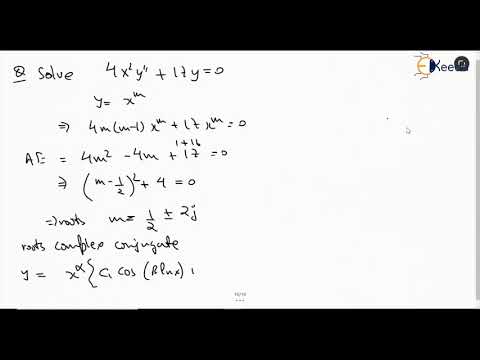 Q Solve 4x²y" + 17y = 0
y = x^m
⇒ 4m(m-1)x^m + 17x^m = 0
1+16
AE = 4m² - 4m + 17 = 0
⇒ (m - 1/2)² + 4 = 0
⇒ roots m = 1/2 ± 2j
roots complex conjugate
y = x^α { C₁ cos (β ln x)